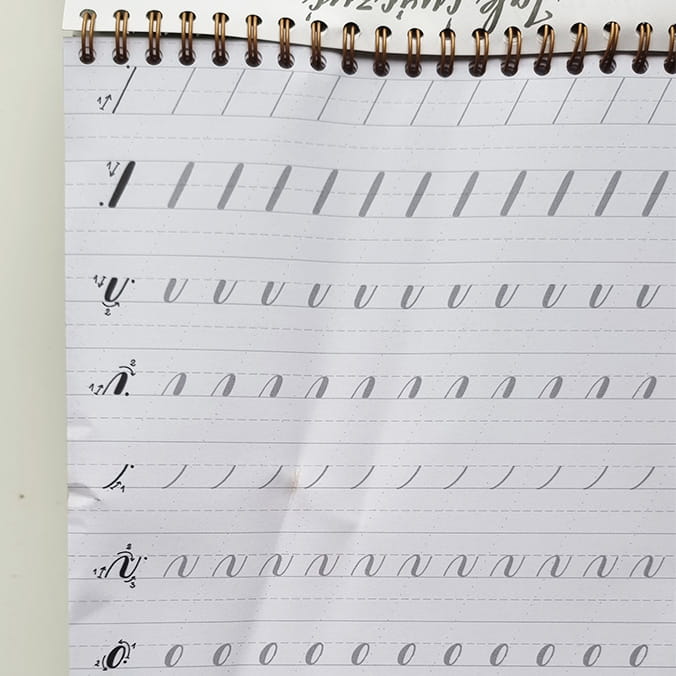 Jak ćwiczyć
1
1
1 2
1 2
1
1 2 3
2 o 1 o o o o o o o o o o o